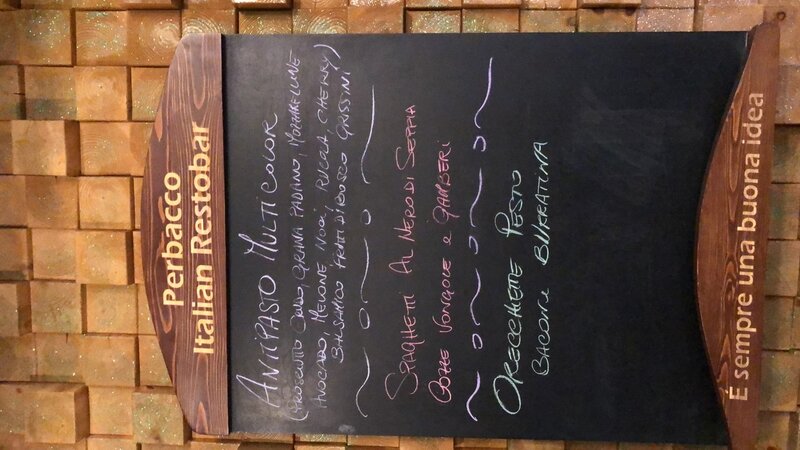 Perbacco
Italian Restobar
ANTIPASTO MULTICOLOR
(PROSCIUTTO CRUDO, GRANA PADANO, MOZZARELLINE
AVOCADO, MELONE, NOCI, RUCOLA, CHERRY,
BALSAMICO FRUTTI DI BOSCO, GRISSINI)
SPAGHETTI AL NERO DI SEPPIA
COZZE VONGOLE E GAMBERI
ORECCHIETTE PESTO
BACON E BURRATINA
È sempre una buona idea